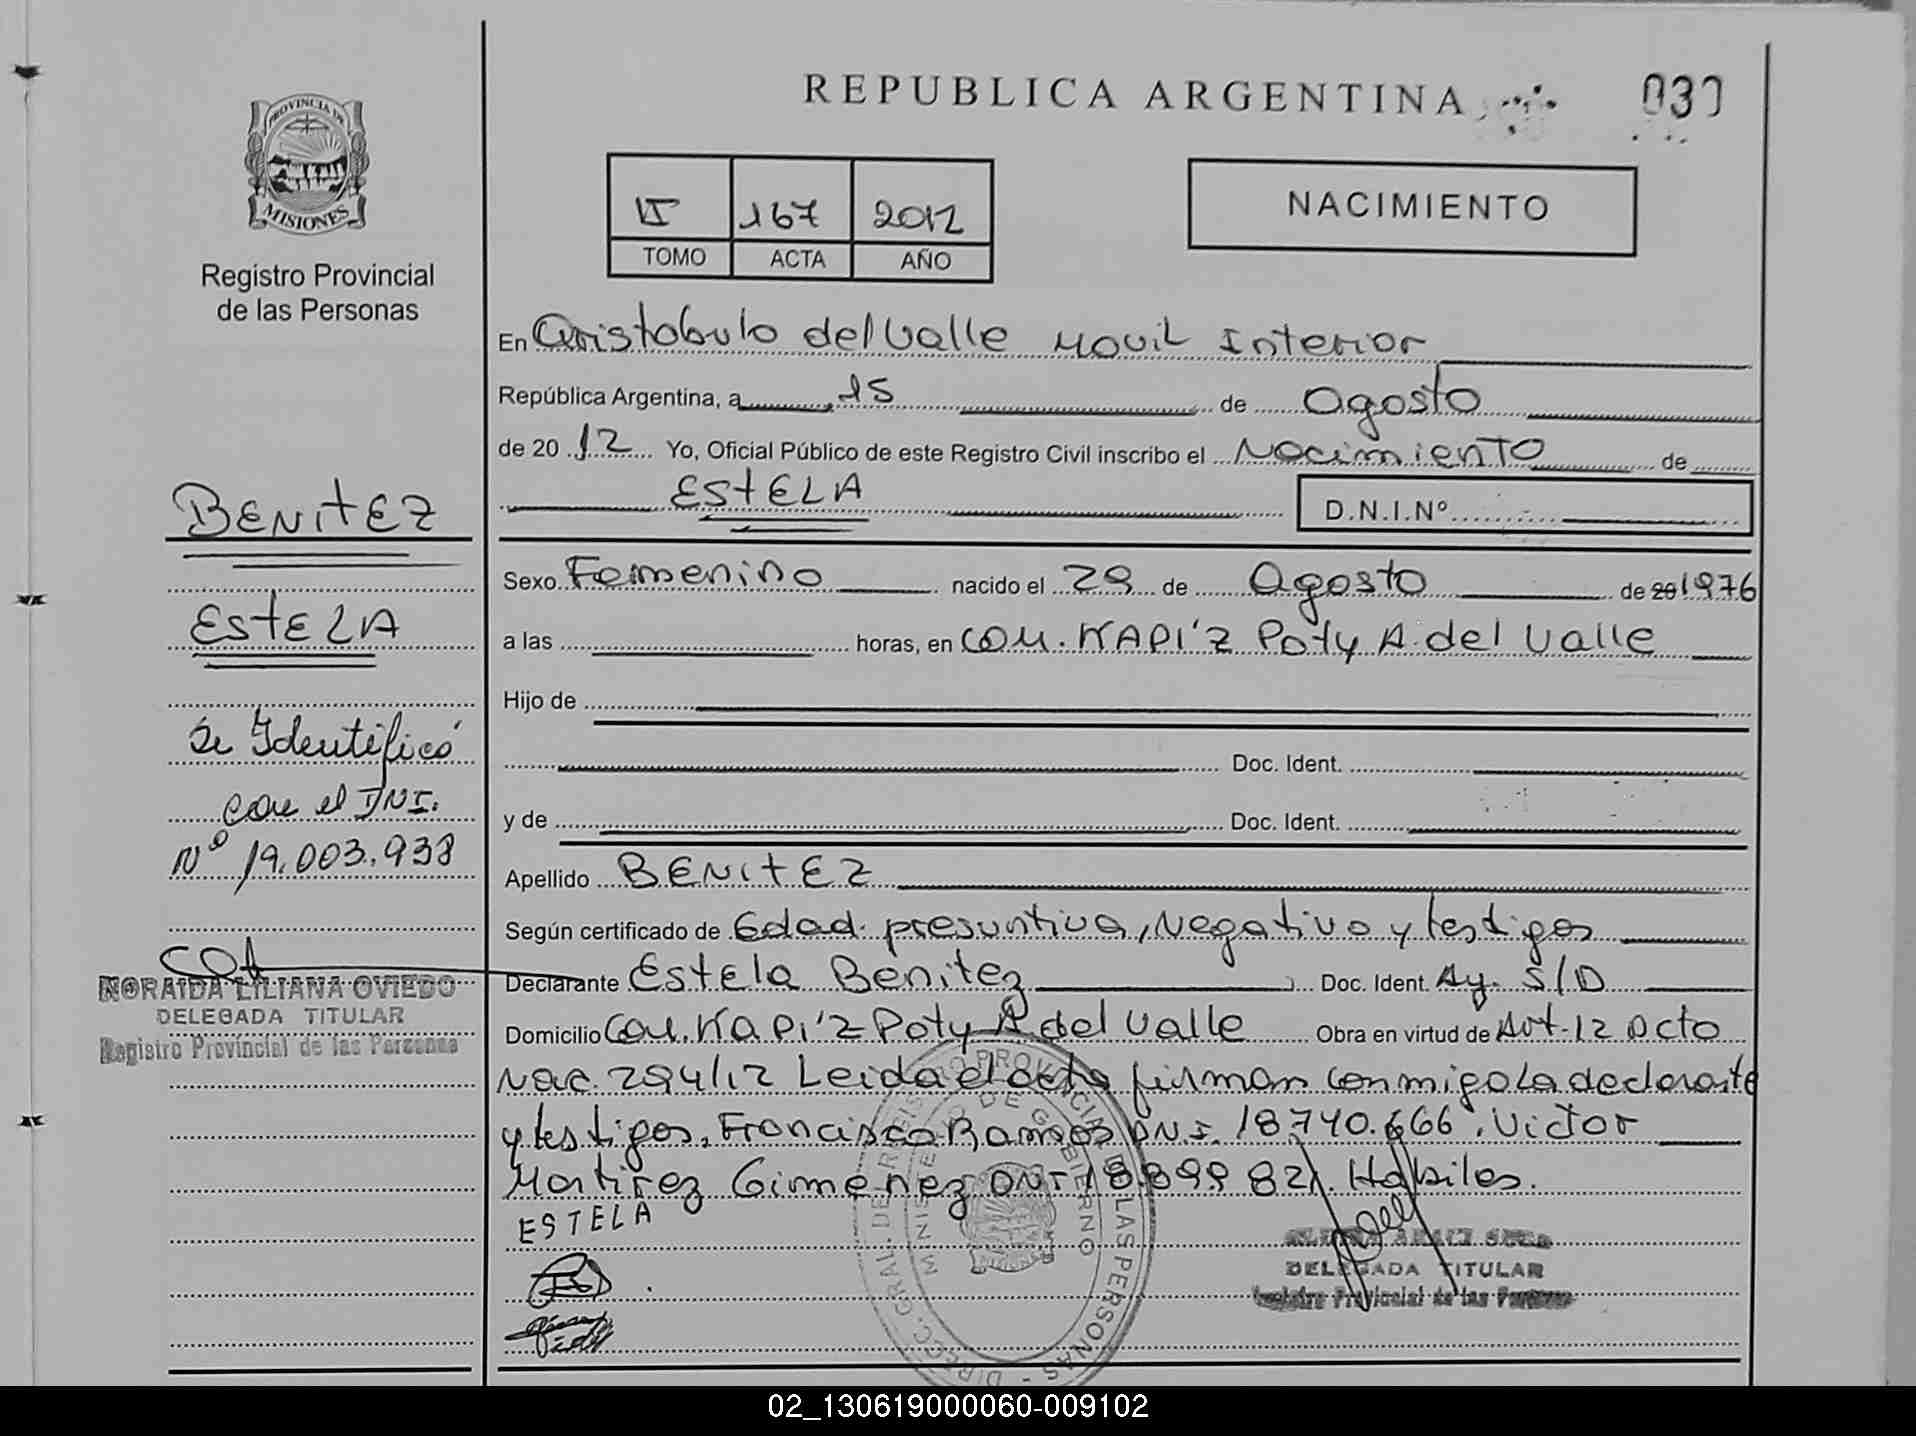 REPUBLICA ARGENTINA
PROVINCIA DE
MISIONES
Registro Provincial
de las Personas
II 167 2012
TOMO ACTA AÑO
NACIMIENTO
En Aristobulo del Valle Movil Interior
República Argentina, a 15 de Agosto
de 2012 Yo, Oficial Público de este Registro Civil inscribo el Nacimiento de
ESTELA D.N.I.Nº
BENITEZ
ESTELA
Se Identificó
con el DNI.
Nº 19.003.938
NORAIDA LILIANA OVIEDO
DELEGADA TITULAR
Registro Provincial de las Personas
Sexo Femenino nacido el 29 de Agosto de 20 1976
a las horas, en Com. KAPI'Z Poty A. del Valle
Hijo de
Doc. Ident.
y de Doc. Ident.
Apellido BENITEZ
Según certificado de Edad presuntiva, Negativo y testigos
Declarante Estela Benitez Doc. Ident. Ay. S/D
Domicilio Com. KAPI'Z Poty A del Valle Obra en virtud de Art. 12 Dcto
Nac. 294/12 Leida el acta firman conmigo La declarante
y testigos. Francisco Ramos DN.I. 18.740.666. Victor
Martirez Gimenez DNI 18.899 821. Habiles.
ESTELA
DELEGADA TITULAR
Registro Provincial de las Personas
DIREC. GRAL. DE REGISTRO PROVINCIAL DE LAS PERSONAS -
MINISTERIO DE GOBIERNO
02_130619000060-009102